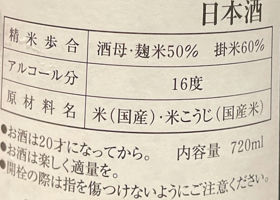 日本酒
精米歩合 酒母・麹米50% 掛米60%
アルコール分 16度
原材料名 米(国産)・米こうじ(国産米)
●お酒は20才になってから。 内容量 720ml
●お酒は楽しく適量を。
●開栓の際は指を傷つけないようにご注意ください。